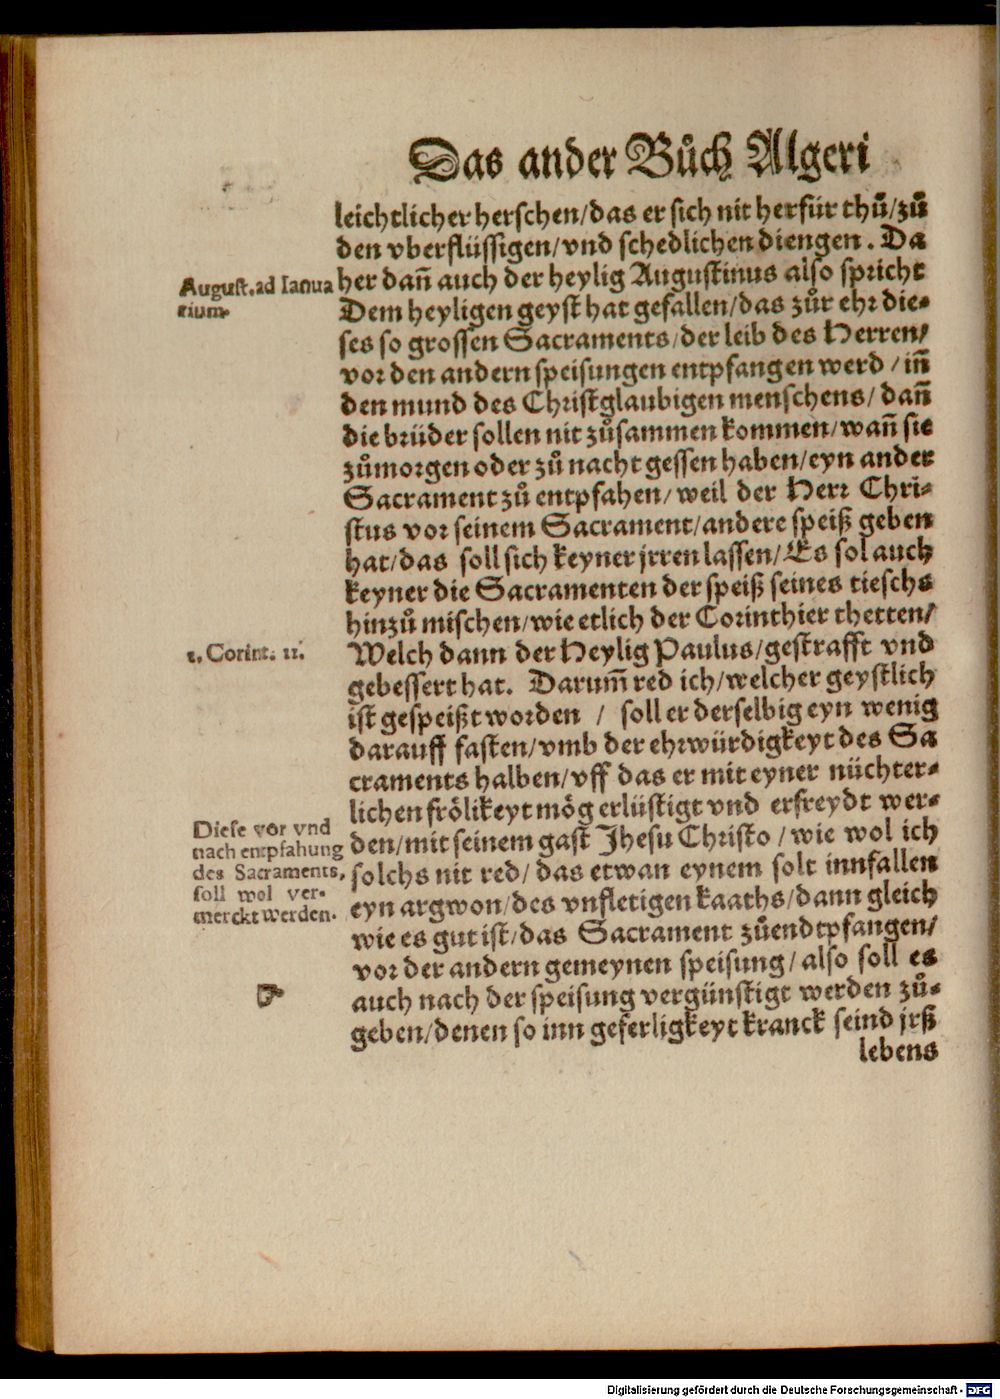 Das ander Bůch Algeri
leichtlicher herschen/das er sich nit herfür thů/zů
den vberflüssigen/vnd schedlichen diengen. Da
her dañ auch der heylig Augustinus also spricht
August. ad Ianua
rium.
Dem heyligen geyst hat gefallen/das zůr ehr die-
ses so grossen Sacraments/der leib des Herren/
vor den andern speisungen entpfangen werd / iñ
den mund des Christglaubigen menschens/ dañ
die brüder sollen nit zůsammen kommen/wañ sie
zůmorgen oder zů nacht gessen haben/eyn ander
Sacrament zů entpfahen/weil der Herr Chri-
stus vor seinem Sacrament/andere speiß geben
hat/das soll sich keyner jrren lassen/Es sol auch
keyner die Sacramenten der speiß seines tieschs
hinzů mischen/wie etlich der Corinthier thetten/
1. Corint. 11.
Welch dann der Heylig Paulus/gestrafft vnd
gebessert hat. Darum̃ red ich/welcher geystlich
ist gespeißt worden / soll er derselbig eyn wenig
darauff fasten/vmb der ehrwürdigkeyt des Sa
craments halben/vff das er mit eyner nüchter-
lichen frölikeyt mög erlüstigt vnd erfreydt wer-
Diese vor vnd
nach entpfahung
des Sacraments,
soll wol ver-
merckt werden.
den/mit seinem gast Jhesu Christo / wie wol ich
solchs nit red/ das etwan eynem solt innfallen
eyn argwon/des vnfletigen kaaths/dann gleich
wie es gut ist/das Sacrament zůendtpfangen/
vor der andern gemeynen speisung/ also soll es
☞
auch nach der speisung vergünstigt werden zů-
geben/denen so inn geferligkeyt kranck seind jrß
lebens
Digitalisierung gefördert durch die Deutsche Forschungsgemeinschaft - DFG